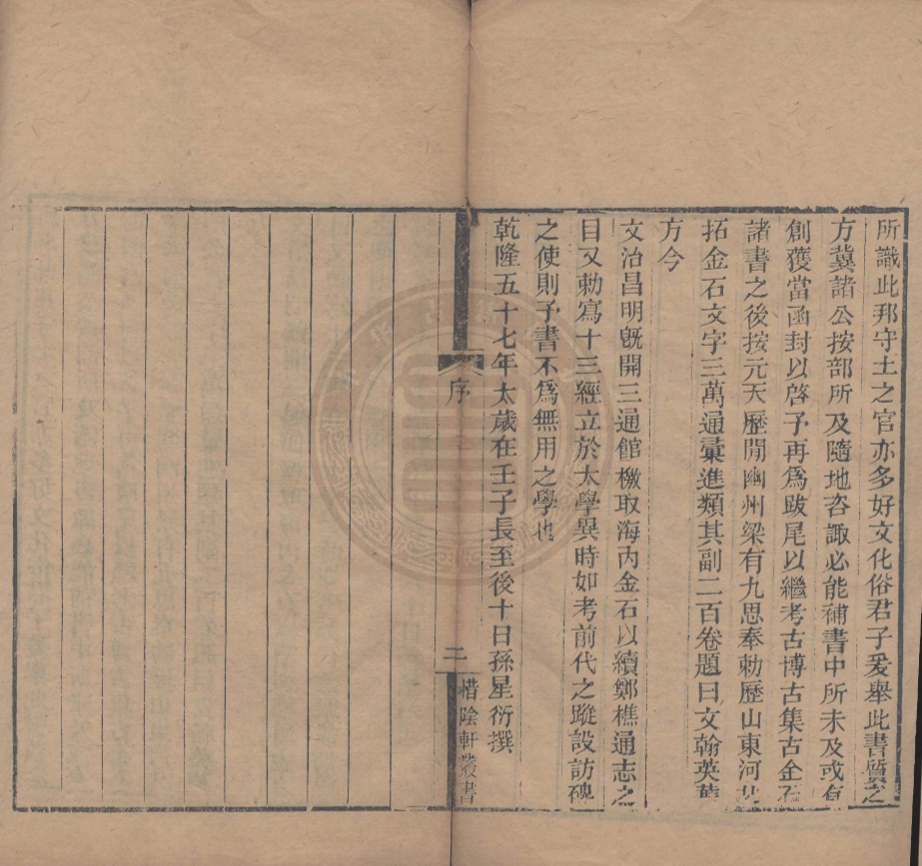 所識此邦守土之官亦多好文化俗君子爰舉此書質之
方冀諸公按部所及隨地咨諏必能補書中所未及或有
創獲當函封以啓予再爲跋尾以繼考古博古集古金石
諸書之後按元天歷閒幽州梁有九思奉勅歷山東河北
拓金石文字三萬通彙進類其副二百卷題曰文翰英華
方今
文治昌明旣開三通館檄取海内金石以續鄭樵通志之
目又勅寫十三經立於太學異時如考前代之蹤設訪碑
之使則予書不爲無用之學也
乾隆五十七年太歲在壬子長至後十日孫星衍撰
序
二
惜陰軒叢書